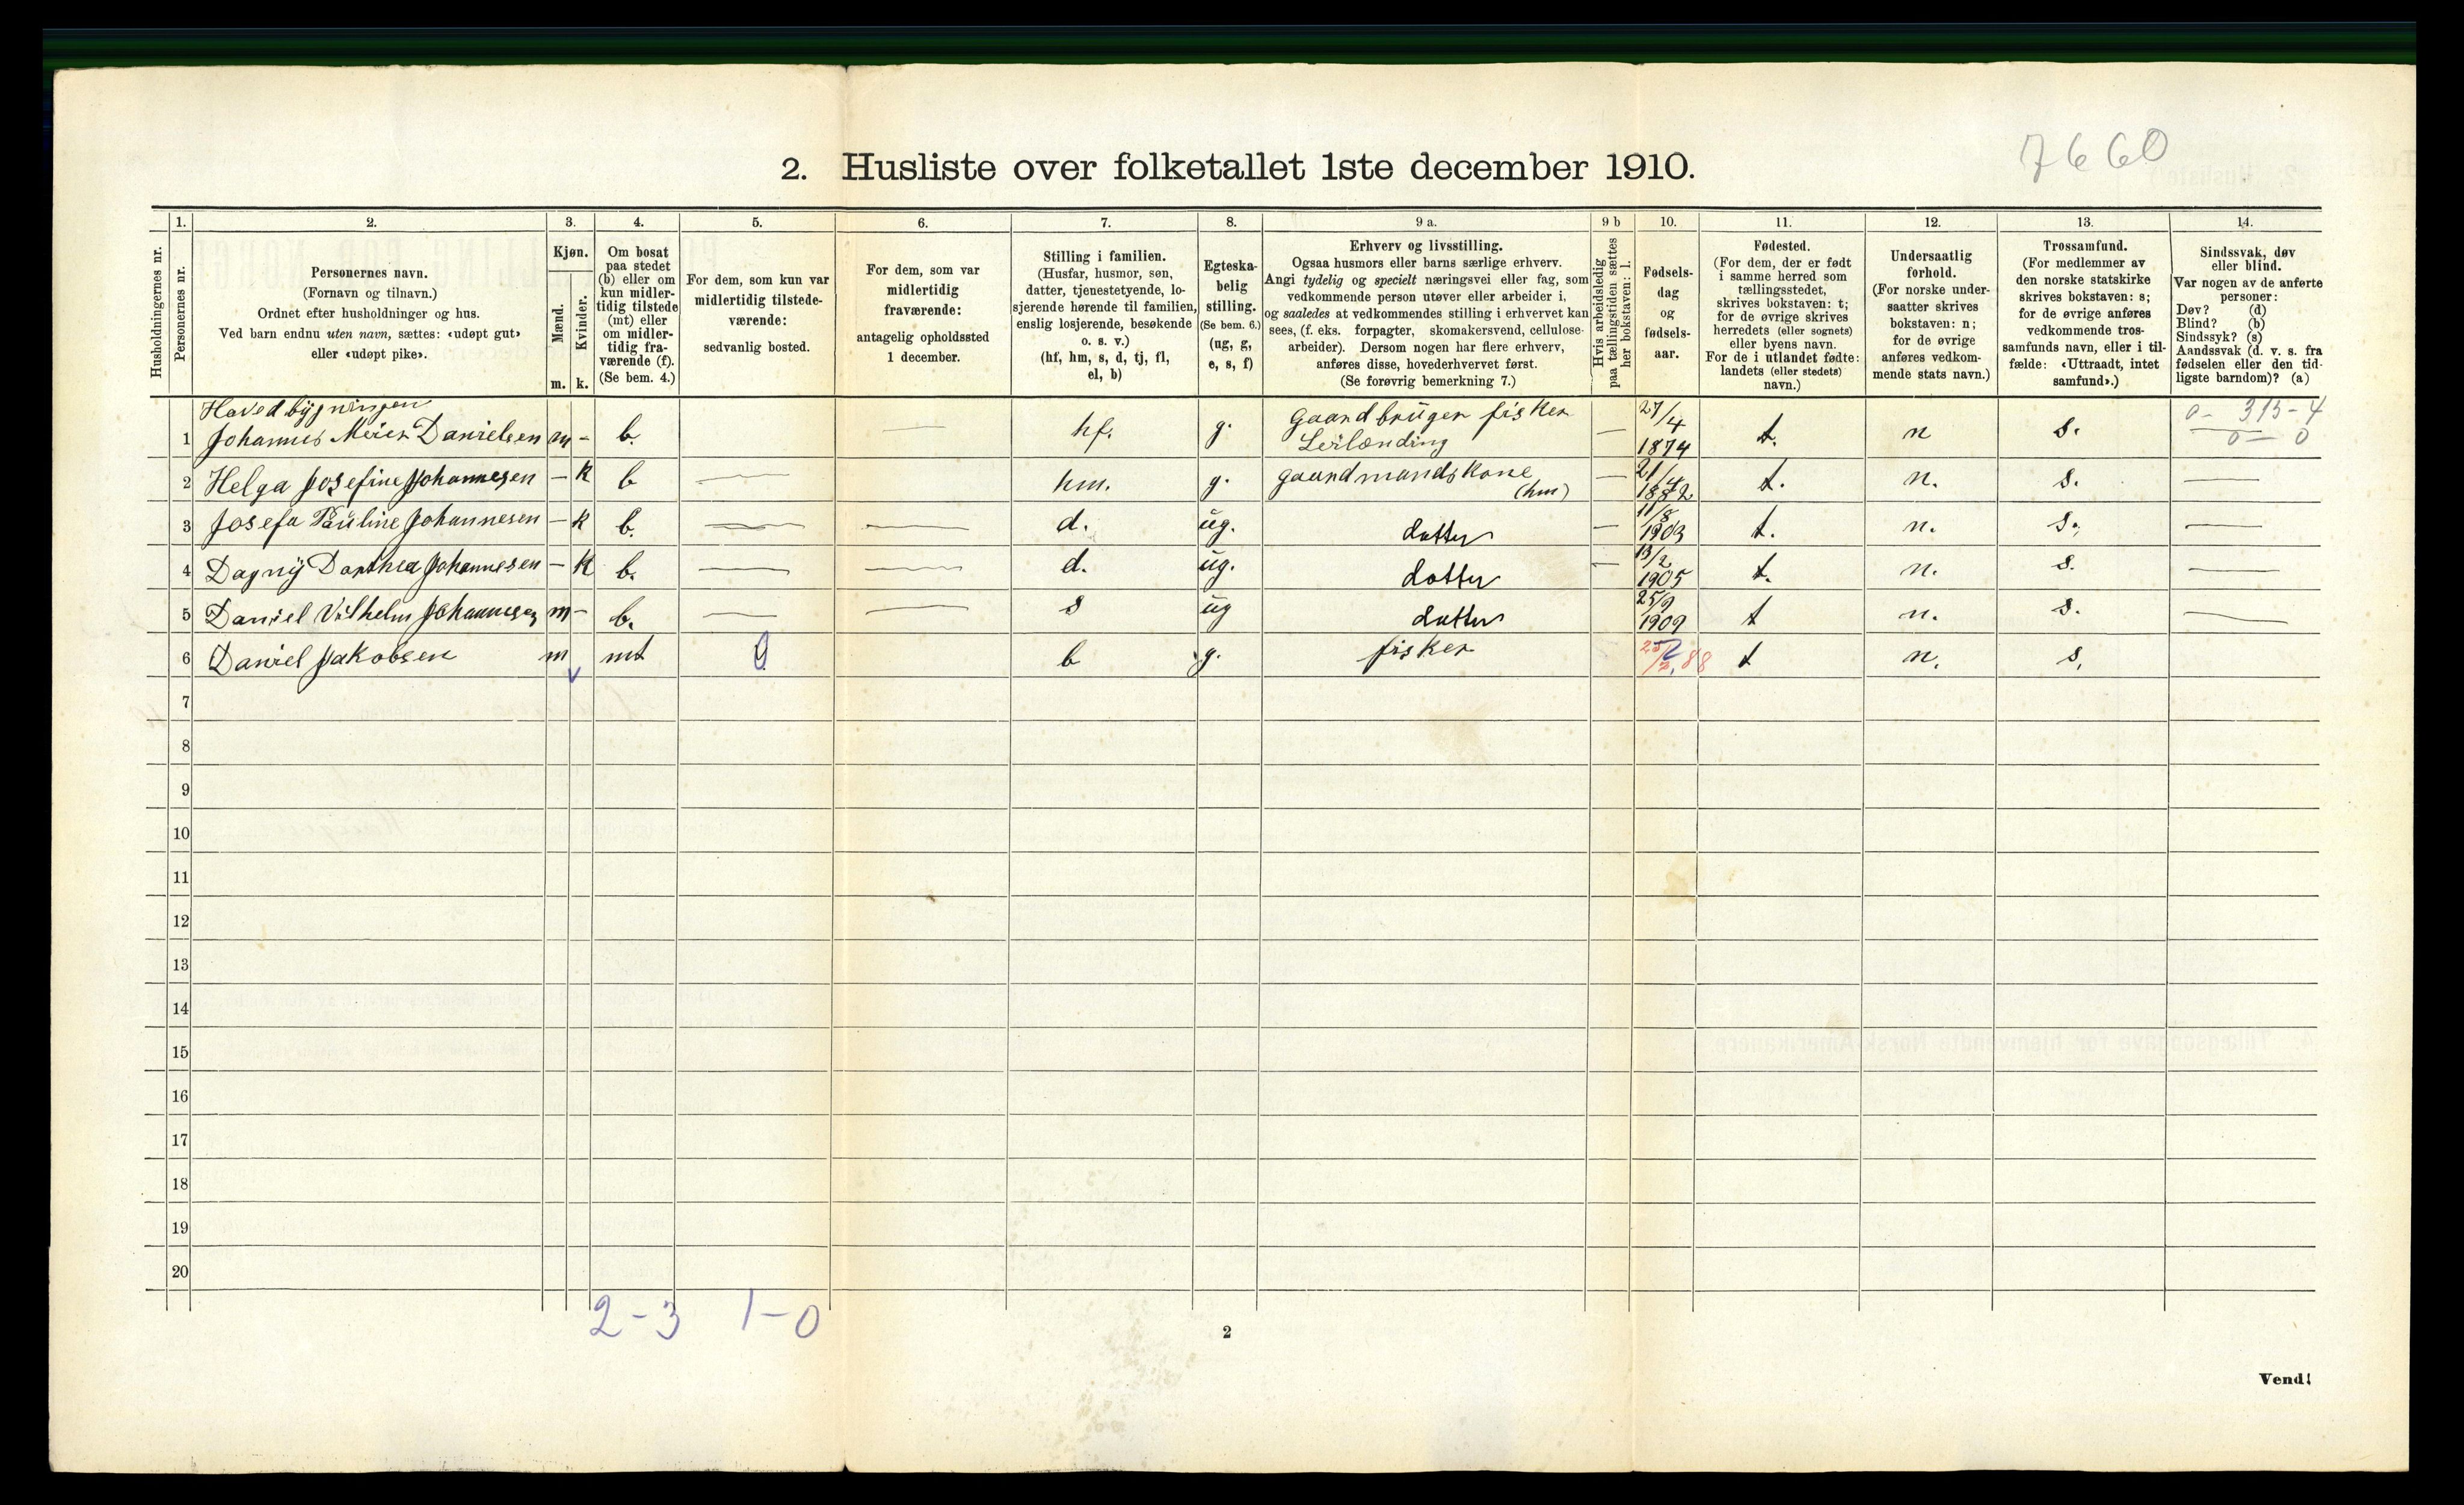 7660
2. Husliste over folketallet 1ste december 1910.
Husholdningernes nr.
1.
Personernes nr.
2.
Personernes navn.
(Fornavn og tilnavn.)
Ordnet efter husholdninger og hus.
Ved barn endnu uten navn, sættes: «udøpt gut»
eller «udøpt pike».
3.
Kjøn.
Mænd.
Kvinder.
m. k.
4.
Om bosat
paa stedet
(b) eller om
kun midler-
tidig tilstede
(mt) eller
om midler-
tidig fra-
værende (f).
(Se bem. 4.)
5.
For dem, som kun var
midlertidig tilstede-
værende:
sedvanlig bosted.
6.
For dem, som var
midlertidig
fraværende:
antagelig opholdssted
1 december.
7.
Stilling i familien.
(Husfar, husmor, søn,
datter, tjenestetyende, lo-
sjerende hørende til familien,
enslig losjerende, besøkende
o. s. v.)
(hf, hm, s, d, tj, fl,
el, b)
8.
Egteska-
belig
stilling.
(Se bem. 6.)
(ug, g,
e, s, f)
9 a.
Erhverv og livsstilling.
Ogsaa husmors eller barns særlige erhverv.
Angi tydelig og specielt næringsvei eller fag, som
vedkommende person utøver eller arbeider i,
og saaledes at vedkommendes stilling i erhvervet kan
sees, (f. eks. forpagter, skomakersvend, cellulose-
arbeider). Dersom nogen har flere erhverv,
anføres disse, hovederhvervet først.
(Se forøvrig bemerkning 7.)
9 b
Hvis arbeidsledig
paa tællingstiden sættes
her bokstaven: l.
10.
Fødsels-
dag
og
fødsels-
aar.
11.
Fødested.
(For dem, der er født
i samme herred som
tællingsstedet,
skrives bokstaven: t;
for de øvrige skrives
herredets (eller sognets)
eller byens navn.
For de i utlandet fødte:
landets (eller stedets)
navn.)
12.
Undersaatlig
forhold.
(For norske under-
saatter skrives
bokstaven: n;
for de øvrige
anføres vedkom-
mende stats navn.)
13.
Trossamfund.
(For medlemmer av
den norske statskirke
skrives bokstaven: s;
for de øvrige anføres
vedkommende tros-
samfunds navn, eller i til-
fælde: «Uttraadt, intet
samfund».)
14.
Sindssvak, døv
eller blind.
Var nogen av de anførte
personer:
Døv? (d)
Blind? (b)
Sindssyk? (s)
Aandssvak (d. v. s. fra
fødselen eller den tid-
ligste barndom)? (a)
Hovedbygningen
1 Johannes Meier Danielsen m - b. — hf. g. Gaardbruger fisker Leilænding — 27/4 1874 t. n s. 0 - 315 - 4 0 — 0
2 Helga Josefine Johannesen — k b — hm. g. gaardmandskone (hm) — 21/4 1882 t. n. s. —
3 Josefa Pauline Johannesen — k b. — — d. ug. datter — 11/8 1903 t. n. s. —
4 Dagny Dorthea Johannesen — k b. — — d. ug. datter — 13/2 1905 t. n. s. —
5 Daniel Vilhelm Johannesen m - b. — — s ug datter 25/9 1909 t n. s. —
6 Daniel Jakobsen m mt b g. fisker 25/2.88 t n. s.
7
8
9
10
11
12
13
14
15
16
17
18
19
20
2 - 3 1 - 0
2
Vend!